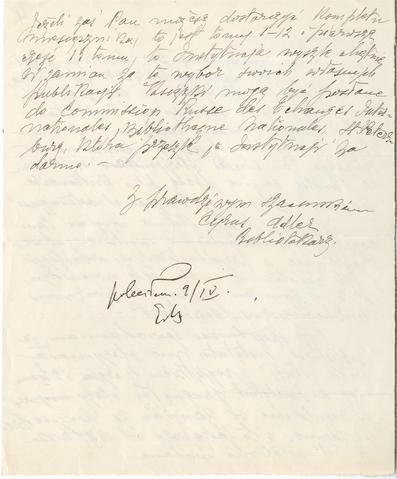 Jeżeli zaś Pan możesz dostarczyć komplet
miesięcznika, to jest tomy 1-12 i pierwszą
część 13 tomu, to Instytucja wyszle chętnie
w zamian za to wybór swoich własnych
publikacyj. Książki mogą być posłane
do Commission Russe des Echanges Inter-
nationales, Bibliotheque Nationales, St. Peters-
burg, która prześle je Instytucji za
darmo. —
Z prawdziwym szacunkiem
Cyrus Adler
Bibliotekarz.
9/IV.